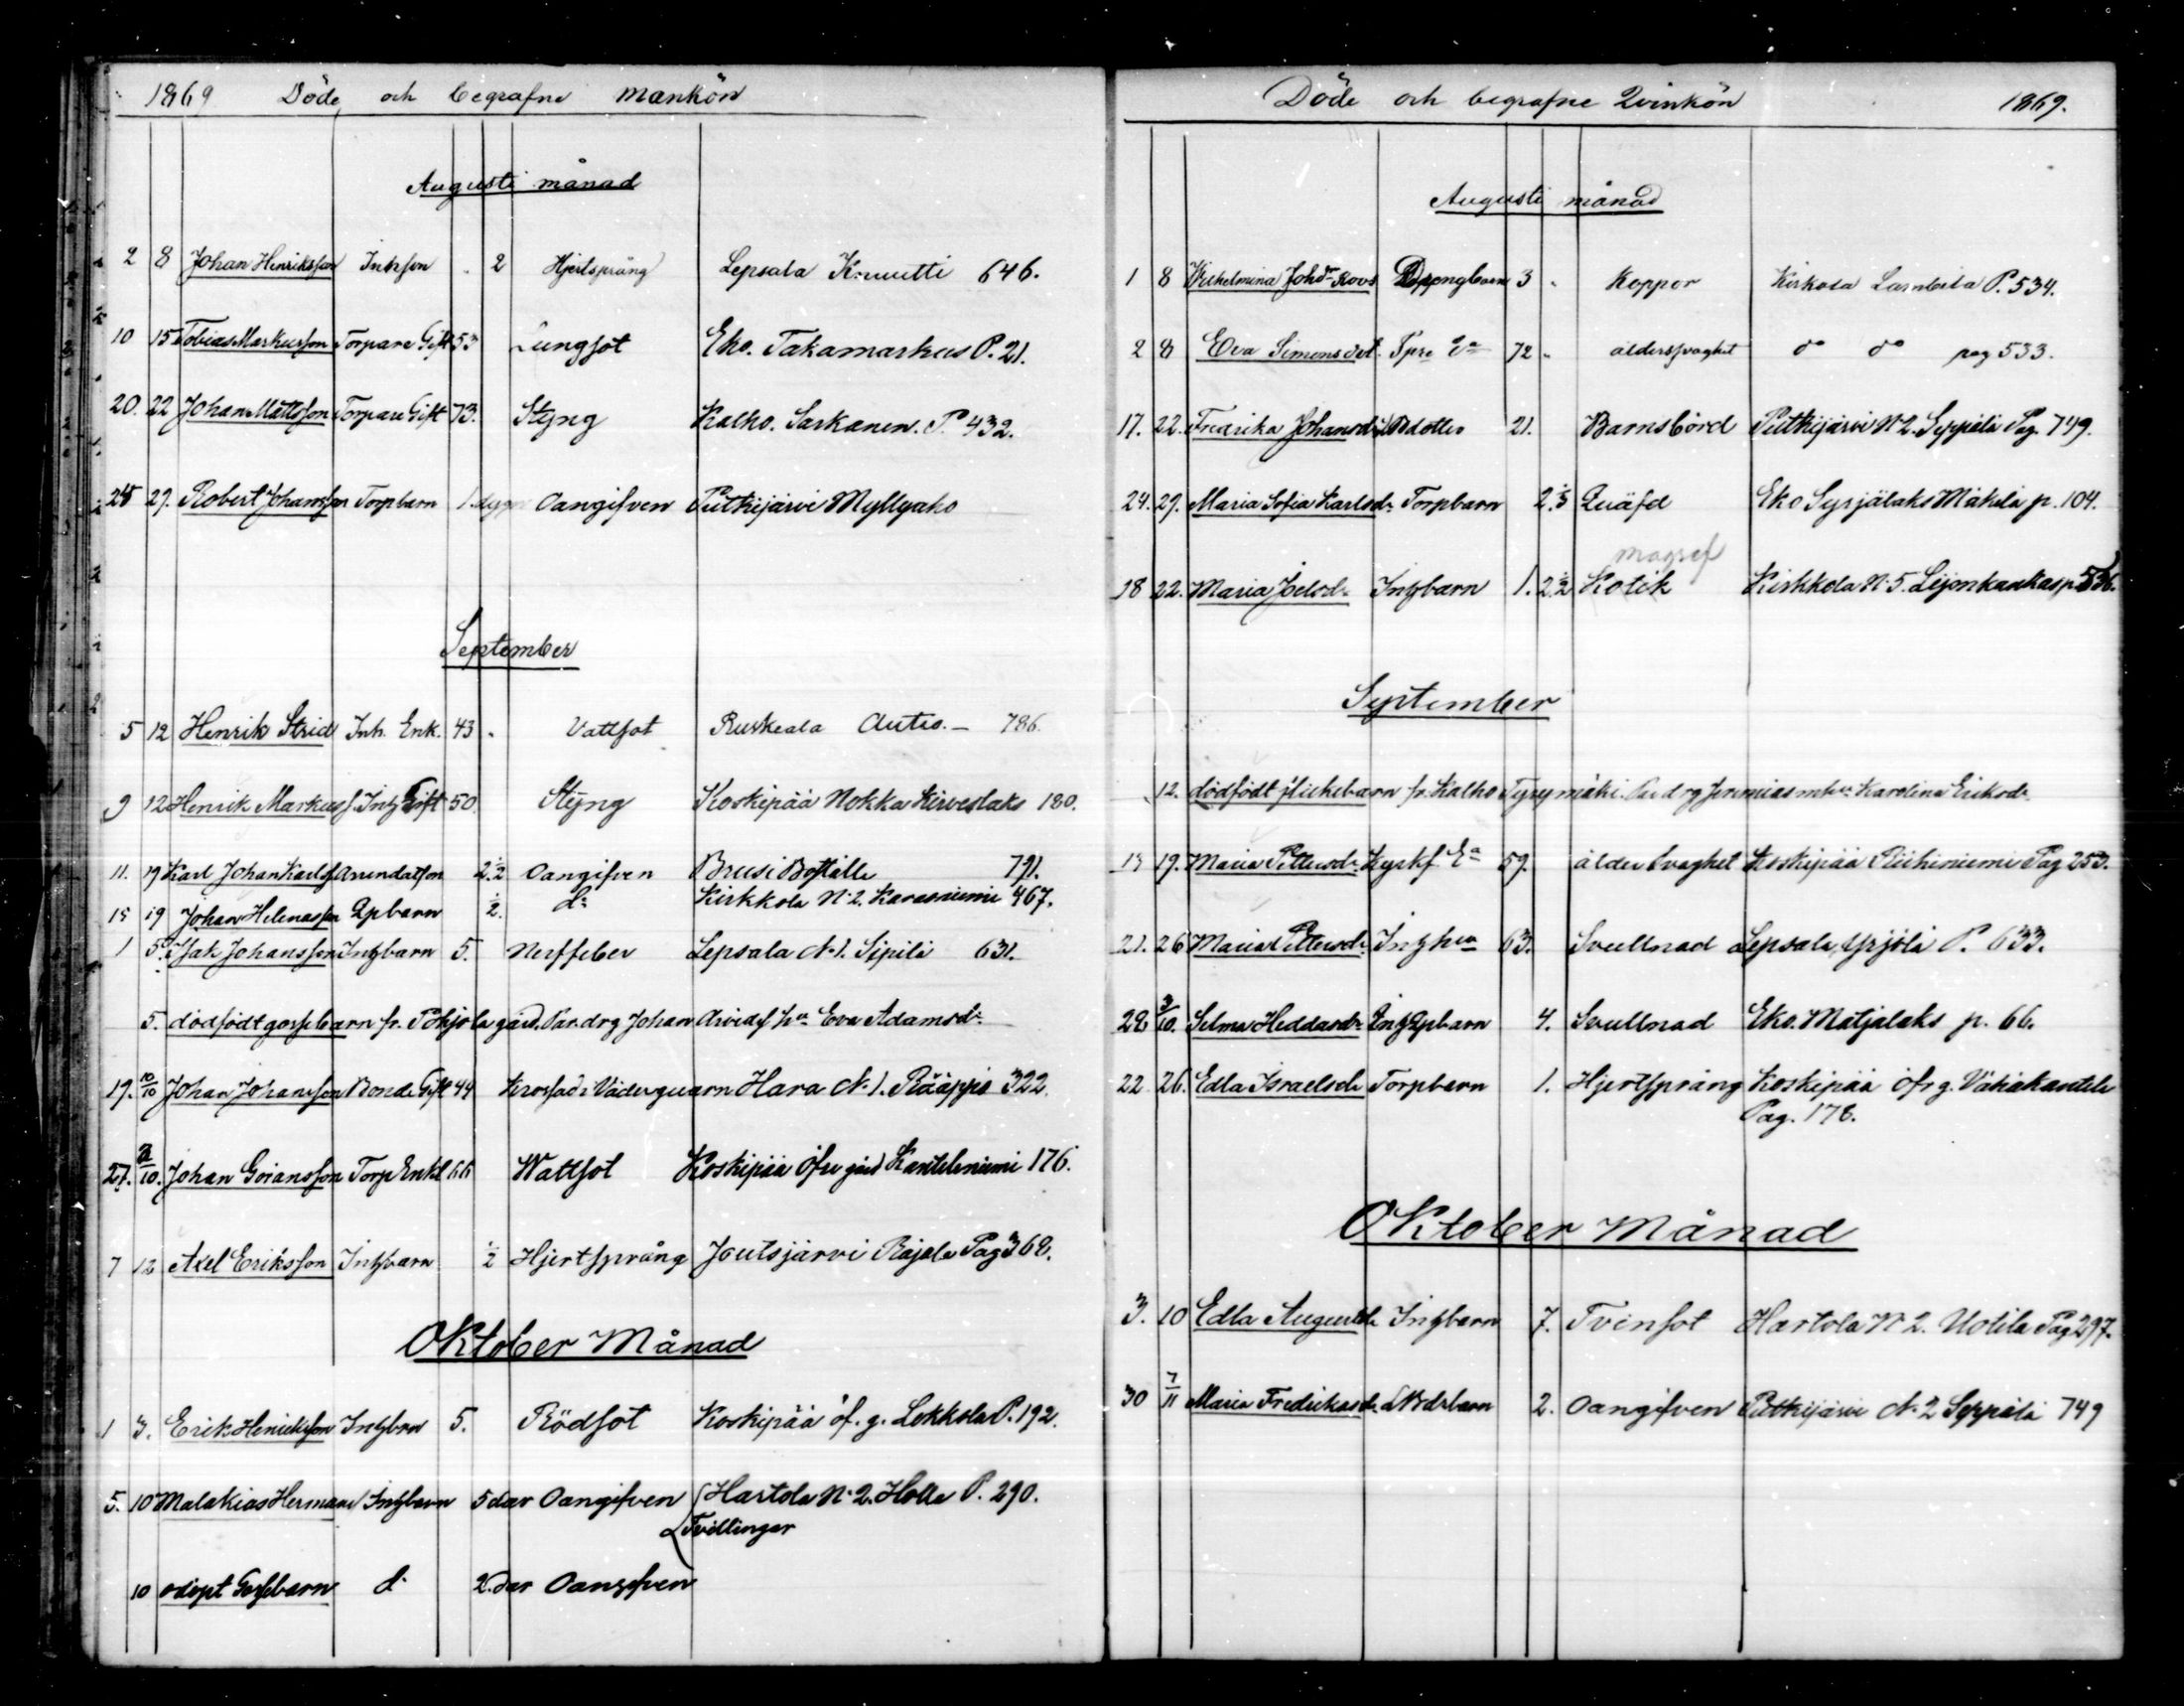 1869 Döde och begrafne mankön
Augusti månad
2 8 Johan Henriksson Inhson 2 Hjertsprång Lepsala Knuutti 646.
10 15 Tobias Markusson Torpare Gift 53 Lungsot Eko. Takamarkus P. 21.
20. 22 Johan Mattsson Torpare Gift 73. Styng Kalho. Sarkanen. P. 432.
25 29. Robert Johansson Torpbarn 1. Oangifven Putkijärvi Myllyaho
September
5 12 Henrik Strid Inh. Enk. 43 Vattsot Ruskeala Autio. — 786.
9 12 Henrik Markuss. Inh Gift 50. Styng Koskipää Nokka Kirveslaks 180.
11. 19 Karl Johan Karlss Arrendatson 2. 1/2 Oangifven Brusi Boställe 791.
15 19 Johan Helenasson Qpbarn 1/2. do Kirkkola N:2. Karasniemi 467.
1 5. Isak Johansson Inhbarn 5. Nerffeber Lepsala N:1. Sipilä 631.
5. dödfödt gossebarn fr. Pohjola gård. Par. drg Johan Arvidss hu Eva Adamsdr.
19. 10/10 Johan Johansson Bonde Gift 44 Krossad i Väderquarn Hara N:1. Rääppiö 322.
27. /10. Johan Göransson Torp Enkl 66 Wattsot Koskipää öfre gård Kanteleniemi 176.
7 12 Axel Eriksson Inhbarn 1/2 Hjertsprång Joutsjärvi Rajala Pag 368.
Oktober Månad
1 3. Erik Henriksson Inhbarn 5. Rödsot Koskipää öf. g. Lekkola P. 192.
5. 10 Malakias Hermans Inhbarn 5 dar Oangifven Hartola N:2. Holla P. 290.
Tvillingar
10 odöpt Gossebarn d: 2. dar Oangifven
Döde och begrafne Qvinkön 1869.
Augusti månad
1 8 Wilhelmina Johdr Roos 3 Koppor Kirkola Lambila P. 534.
2 8 Eva Simonsdot. Tpre Ea 72 ålderssvaghet do do pag 533.
17. 22. Fredrika Johansdr Bdotter 21. Barnsbörd Putkijärvi N:2. Seppälä Pag. 749.
24. 29. Maria Sofia Karlsdr. Torpbarn 2. Quäfd Eko Syrjälaks Mäkelä p. 104.
magref
18 22. Maria Joelsdr. Inhbarn 1. 2 1/2 Kolik Kirkkola N:5. Leijonkankas p. 536.
September
12. dödfödt flickebarn fr. Kalho Tyrymäki. Par drg Jeremias m hu Karolina Eriksdr.
13 19. Maria Pettersdr. Kyrkf. Ea 59. ålders svaghet Koskipää Riihiniemi Pag 253.
21. 26 Maria Pettersdr. Inh hu 63. Svullnad Lepsala Yrjölä P. 633.
28 3/10. Selma Heddasdr. Inh Qpbarn 4. Svullnad Eko. Matjalaks p. 66.
22. 26. Edla Israelsdr Torpbarn 1. Hjertsprång Koskipää öfr g. Vähäkantele
Pag. 178.
Oktober Månad
3. 10 Edla Augustdr. Inhbarn 7. Tvinsot Hartola N:2. Uotila Pag 297.
30 7/11 Maria Fredrikasdr. Bdrbarn 2. Oangifven Putkijärvi N:2 Seppälä 749